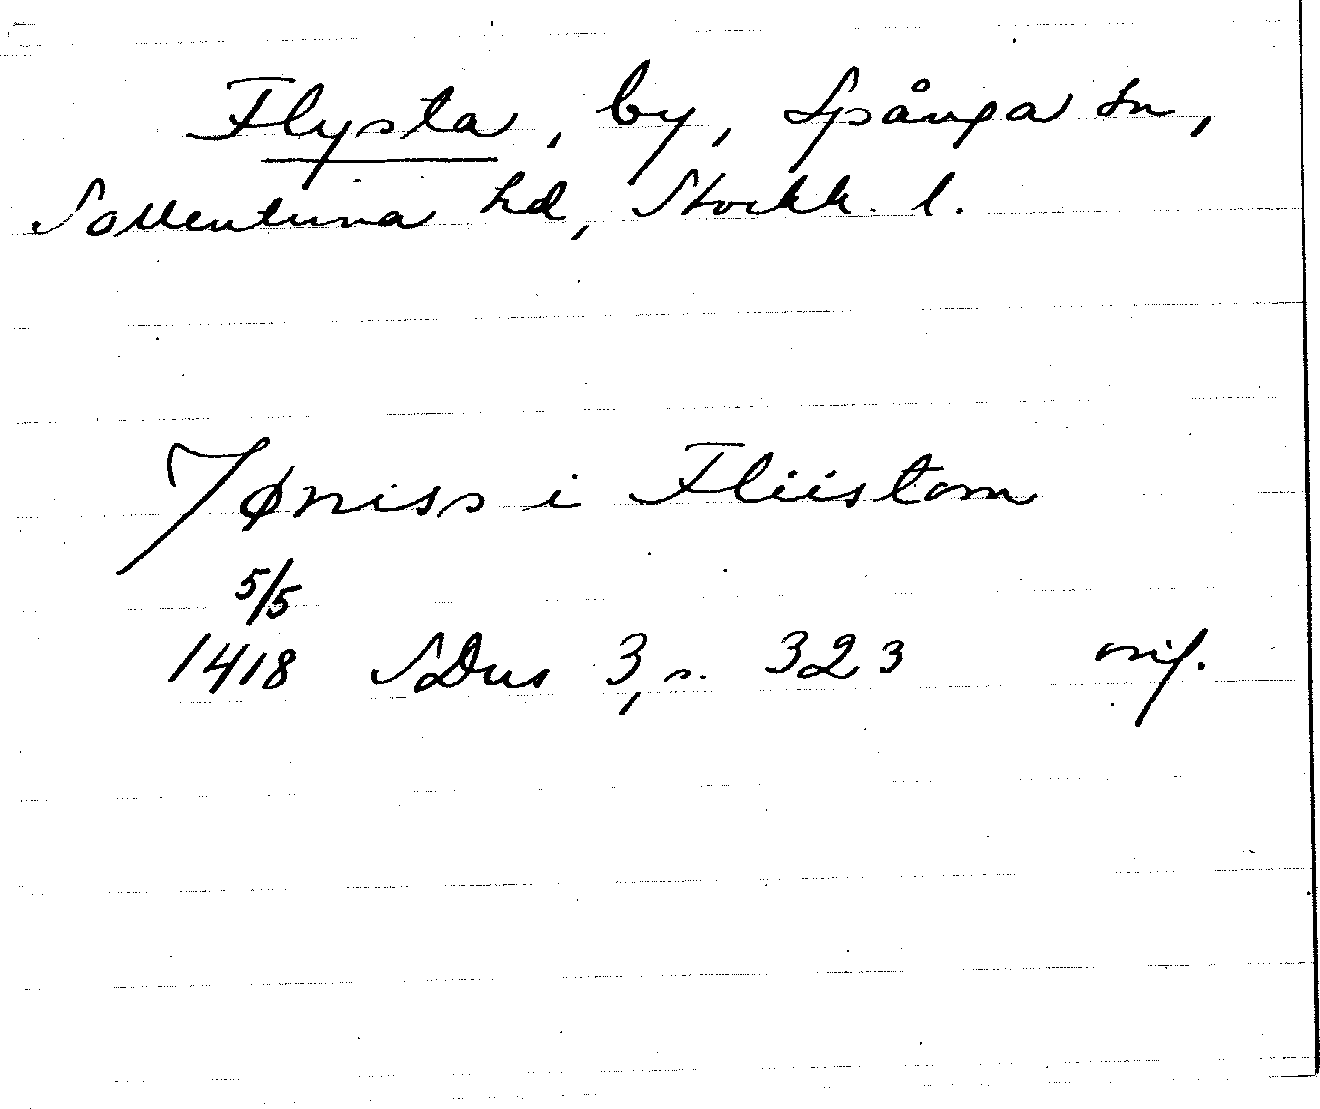 Flysta, by, Spånga sn,
Sollentuna hd, Stockh. l.
Jøniss i Fliistom
5/5
1418 SDns 3, s. 323 orig.